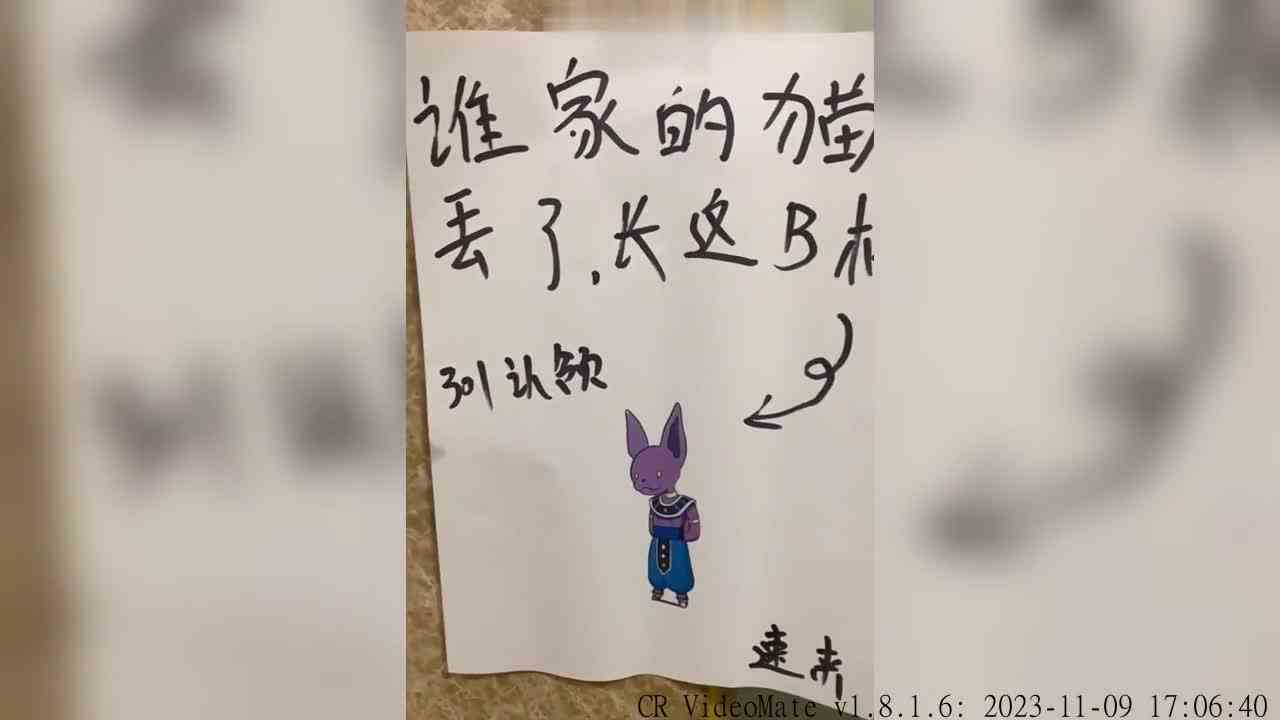 谁家的猫
丢了,长这B
301认领
速来
CR VideoMate v1.8.1.6: 2023-11-09 17:06:40